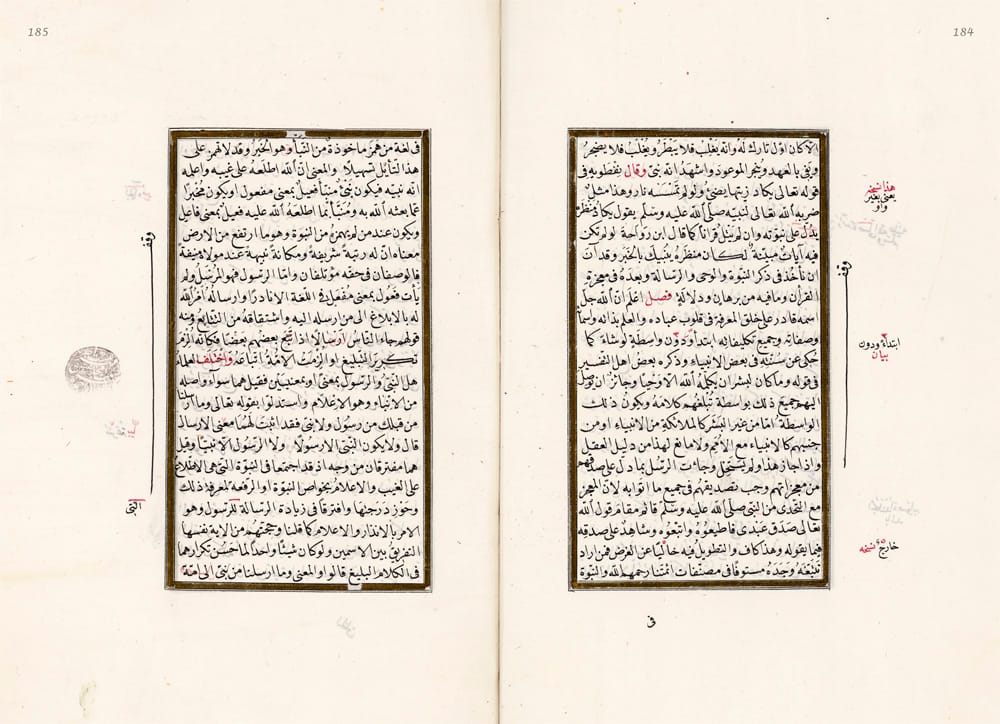 184
الاكان اوّل تارك له وانه يغلب فلا يبطر ويغلب فلا يضجر
ويفى بالعهد وينجز الموعود واشهد انه نبىّ وقال نفطويه فى
قوله تعالى يكاد زيتها يضىء ولو لم تمسسه نار وهذا مثل
ضربه الله تعالى لنبيّه صلى الله عليه وسلم يقول يكاد منظره
يدلّ على نبوّته وان لم يتل قرآنا كما قال ابن رواحة لو لم تكن
فيه آيات مبيّنة لكان منظره ينبيك بالخبر وقد آن
ان نأخذ فى ذكر النبوة والوحى والرسالة وبعده فى معجزة
القرآن وما فيه من برهان ودلالة فصل اعلم انّ الله جل
اسمه قادر على خلق المعرفة فى قلوب عباده والعلم بذاته واسمائه
وصفاته وجميع تكليفاته ابتداءً دون واسطة لو شاء كما
حكى عن سنّته فى بعض الانبياء وذكره بعض اهل التفسير
فى قوله وما كان لبشر ان يكلّمه الله الا وحيا وجائز ان يوصل
اليهم جميع ذلك بواسطة تبلّغهم كلامه ويكون ذلك
الواسطة امّا من غير البشر كالملائكة مع الانبياء او من
جنسهم كالانبياء مع الامم ولا مانع لهذا من دليل العقل
واذا جاز هذا ولم يستحل وجاءت الرسل بما دلّ على صدقهم
من معجزاتهم وجب تصديقهم فى جميع ما اتوا به لانّ المعجز
مع التحدى من النبى صلى الله عليه وسلم قائم مقام قول الله
تعالى صدق عبدى فاطيعوه واتبعوه وشاهد على صدقه
فيما يقوله وهذا كاف والتطويل فيه خارج عن الغرض فمن اراد
تتبّعه وجده مستوفا فى مصنّفات ائمتنا رحمهم الله والنبوة
هذا نسخه
يعنى بغير
واو
وقف
ابتداءً ودون
بيان
خارج نسخه
فى
185
فى لغة من همز مأخوذة من النبأ وهو الخبر وقد لا تهمز على
هذا التأويل تسهيلا والمعنى انّ الله اطلعه على غيبه واعلمه
انه نبيّه فيكون نبىّ منبّأ فعيل بمعنى مفعول او يكون مخبرا
عمّا بعثه الله به ومنبّئا بما اطلعه الله عليه فعيل بمعنى فاعل
ويكون عند من لم يهمزه من النبوة وهو ما ارتفع من الارض
معناه انّ له رتبة شريفة ومكانة نبيهة عند مولاه منيفة
فالوصفان فى حقه مؤتلفان وامّا الرسول فهو المرسل ولم
يأت فعول بمعنى مفعل فى اللغة الا نادرا وارساله امر الله
له بالابلاغ الى من ارسله اليه واشتقاقه من التتابع ومنه
قولهم جاء الناس ارسالا اذا تبع بعضهم بعضا فكانه الزم
تكرير التبليغ او الزمت الامة اتباعه واختلف العلماء
هل النبى والرسول بمعنى او بمعنيين فقيل هما سواء واصله
من الانباء وهو الاعلام واستدلوا بقوله تعالى وما ارسلنا
من قبلك من رسول ولا نبى فقد اثبت لهما معنى الارسال
قال ولا يكون النبى الا رسولا ولا الرسول الا نبيا وقيل
هما مفترقان من وجه اذ قد اجتمعا فى النبوة التى هى الاطلاع
على الغيب والاعلام بخواص النبوة او الرفعة لمعرفة ذلك
وحوز درجتها وافترقا فى زيادة الرسالة للرسول وهو
الامر بالانذار والاعلام كما قلنا وحجتهم من الاية نفسها
التفريق بين الاسمين ولو كان شيئا واحدا لما حسن تكرارهما
فى الكلام البليغ قالوا والمعنى وما ارسلنا من نبى الى امّة
وقف